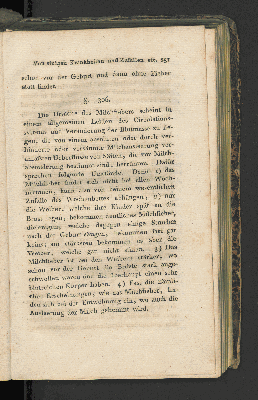 Von einigen Krankheiten und Zufällen etc. 251
schon vor der Geburt und dann ohne Fieber
statt findet.
§. 306.
Die Ursache des Milchfiebers scheint in
einem allgemeinen Leiden des Circulations-
systems und Veränderung der Blutmasse zu
gen, die von einem absoluten oder durch ver-
hinderte oder versäumte Milchaussonderung ver-
Ueberfluss von Säften, die zur Milch-
absonderung bestimmt sind, herrühren. Dafür
sprechen folgende Umstände. Denn 1) das
Milchfieber findet sich nicht bei allen Wöch-
nerinnen, kann also von keinem wesentlichen
Zufalle des Wochenbettes abhängen; 2) nur
die Weiber, welche ihre Kinder spät an die
Brust legen, bekommen deutliche Milchfieber,
diejenigen, welche dagegen einige Stunden
nach der Geburt säugen, bekommen fast gar
keins; am stärksten bekommen es aber die
Weiber, welche gar nicht stillen. 3) Das
Milchfieber ist bei den Weibern stärker, wo
schon vor der Geburt die Brüste stark ange-
schwollen waren und die überhaupt einen sehr
blutreichen Körper haben. 4) Fast die näm-
lichen Erscheinungen, wie das Milchfieber, fin-
den sich bei der Entwöhnung ein, wo auch die
Ausleerung der Milch gehemmt wird.